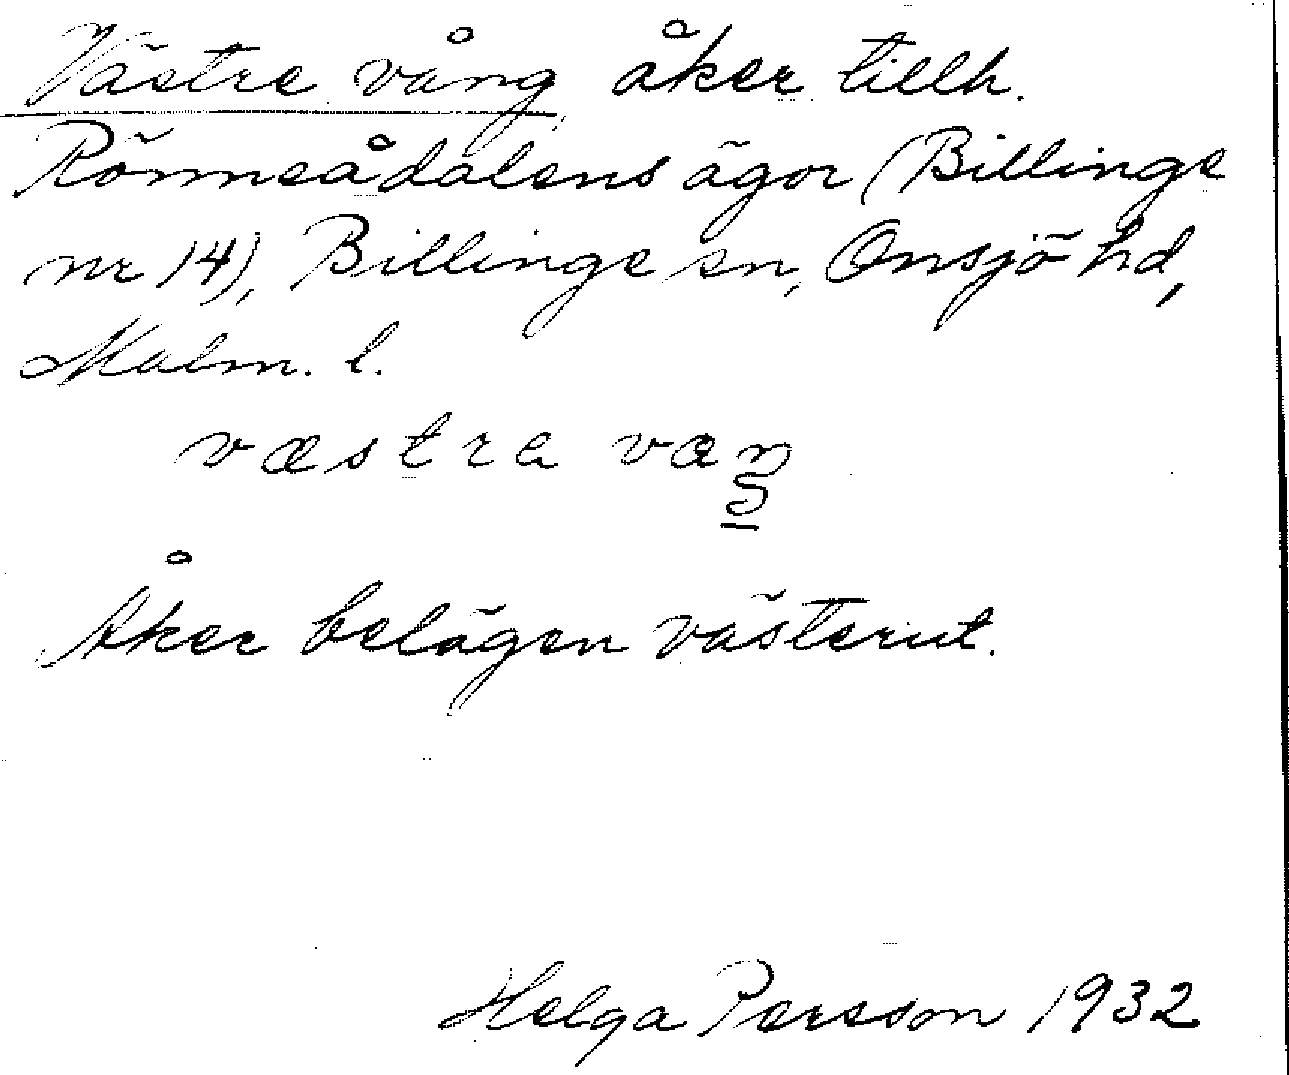 Västre vång åker tillh.
Rönneådalens ägor (Billinge
nr 14), Billinge sn, Onsjö hd,
Malm. l.
væstra vaŋ
Åker belägen västerut.
Helga Persson 1932